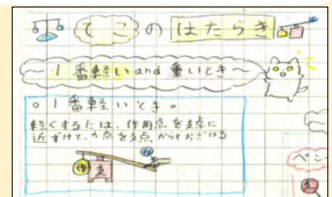 てこのはたらき
～1番軽いand重いとき～
○1番軽いとき。
軽くするには、作用点を支点に
近ずけて、力点を支点からとおざける
作
支